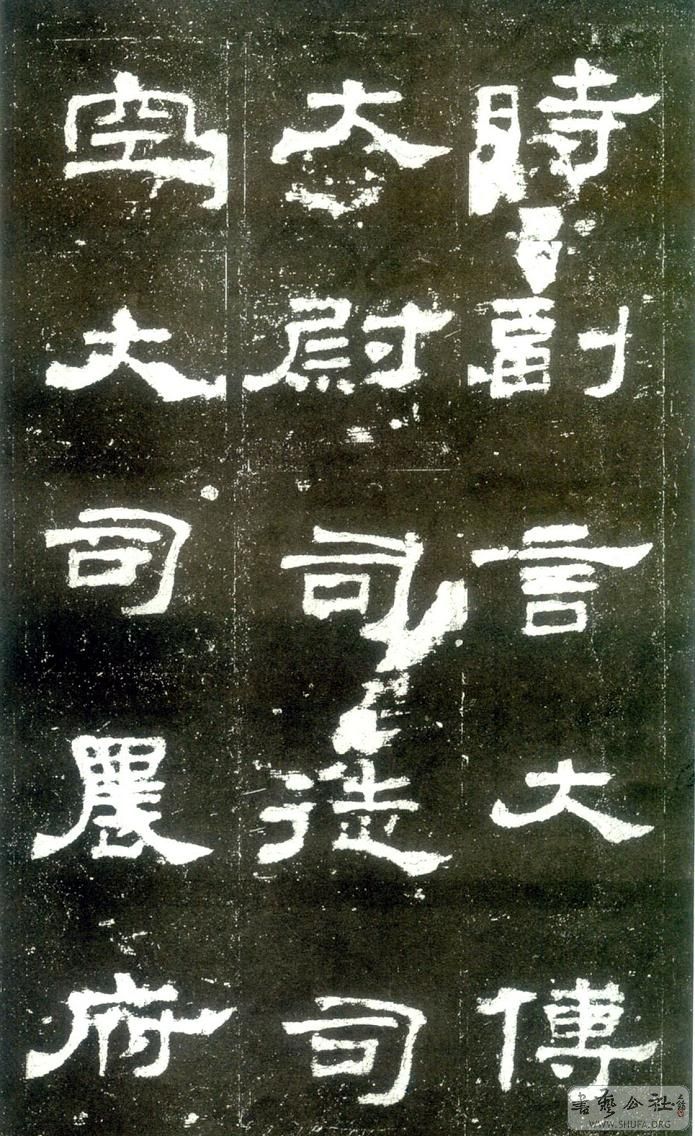 時副言大傅
大尉司徒司
空大司農府
書藝公社
WWW.SHUFA.ORG